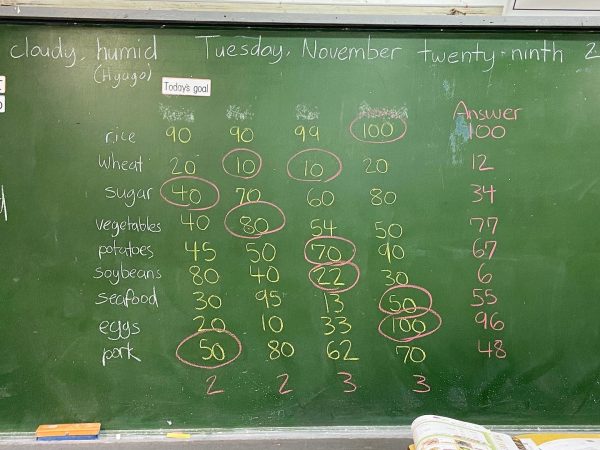 cloudy, humid Tuesday, November twenty-ninth 2
(Hyogo)
Today's goal
Answer
rice 90 90 99 100 100
wheat 20 10 10 20 12
sugar 40 70 60 80 34
vegetables 40 80 54 50 77
potatoes 45 50 70 90 67
soybeans 80 40 22 30 6
seafood 30 95 13 50 55
eggs 20 10 33 100 96
pork 50 80 62 70 48
2 2 3 3